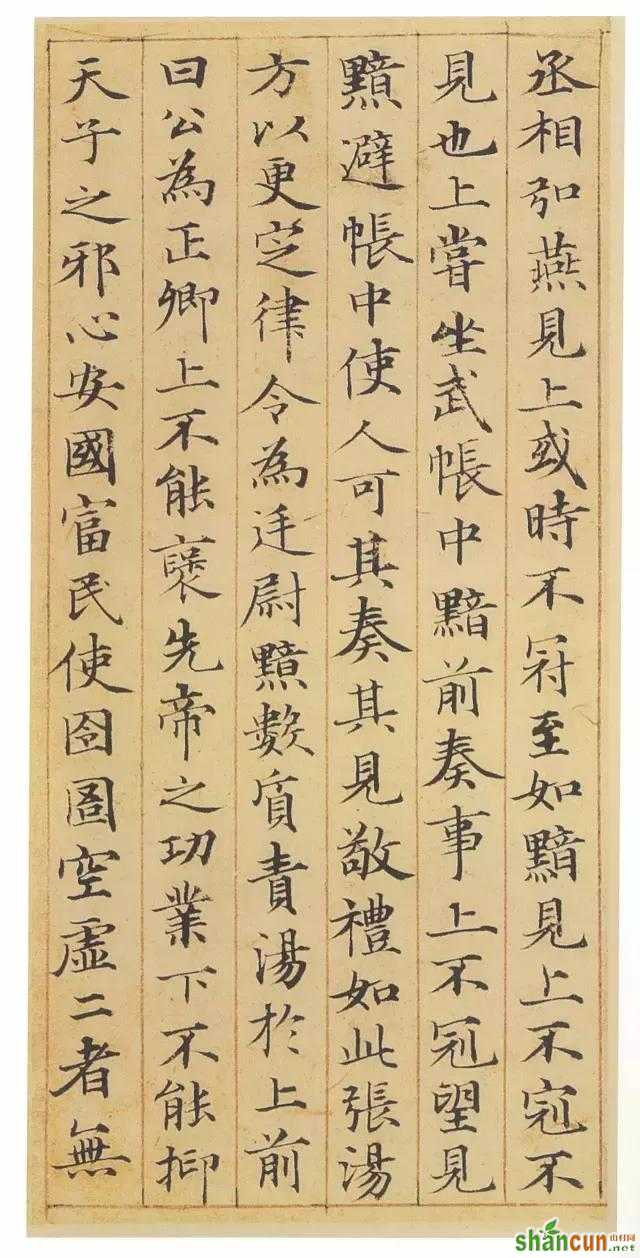 丞相弘燕見上或時不冠至如黯見上不冠不
見也上嘗坐武帳中黯前奏事上不冠望見
黯避帳中使人可其奏其見敬禮如此張湯
方以更定律令為廷尉黯數質責湯於上前
曰公為正卿上不能褒先帝之功業下不能抑
天子之邪心安國富民使囹圄空虛二者無
shancun 山村网
.net